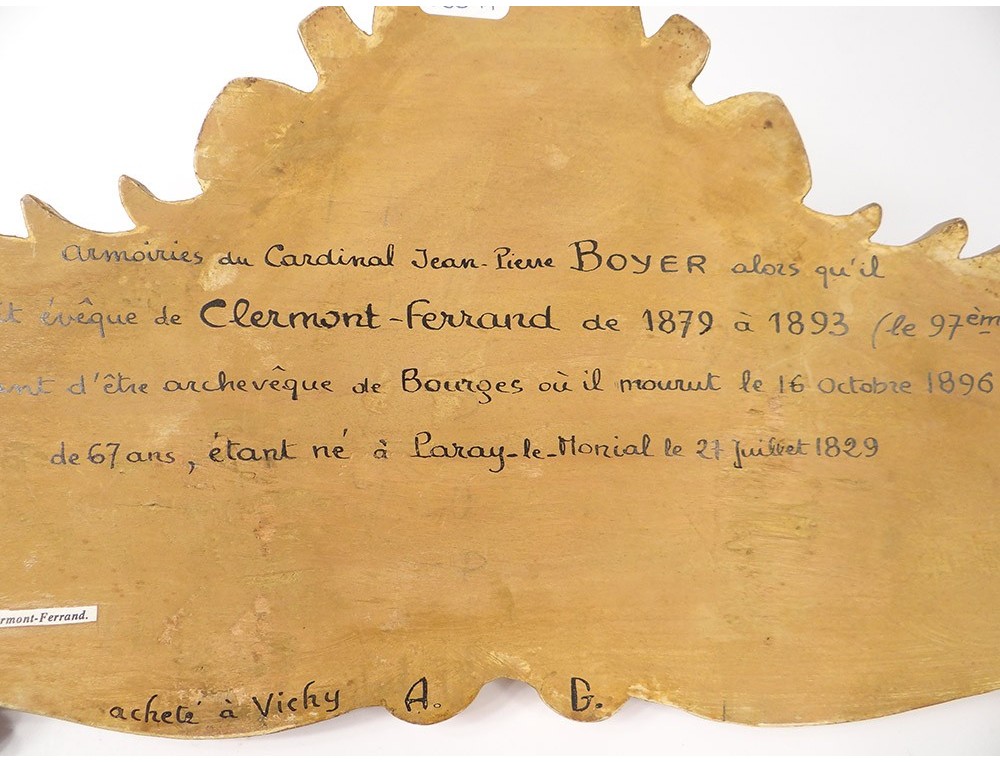 armoiries du Cardinal Jean-Pierre BOYER alors qu'il
évêque de Clermont-Ferrand de 1879 à 1893 (le 97èm
d'être archevêque de Bourges où il mourut le 16 Octobre 1896
de 67 ans, étant né à Paray-le-Monial le 27 Juillet 1829
rmont-Ferrand.
acheté à Vichy A. G.